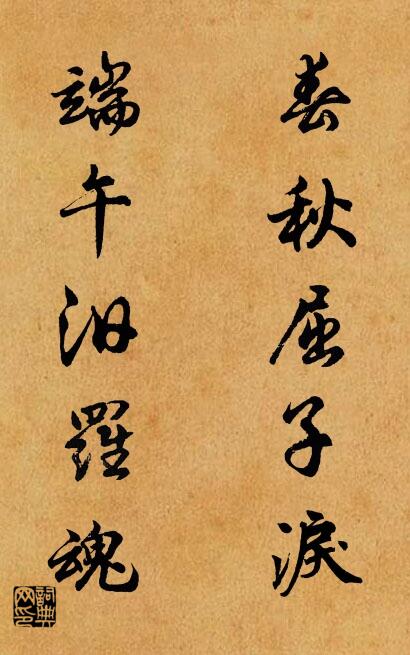 春秋屈子淚
端午汨羅魂
詞典
网印